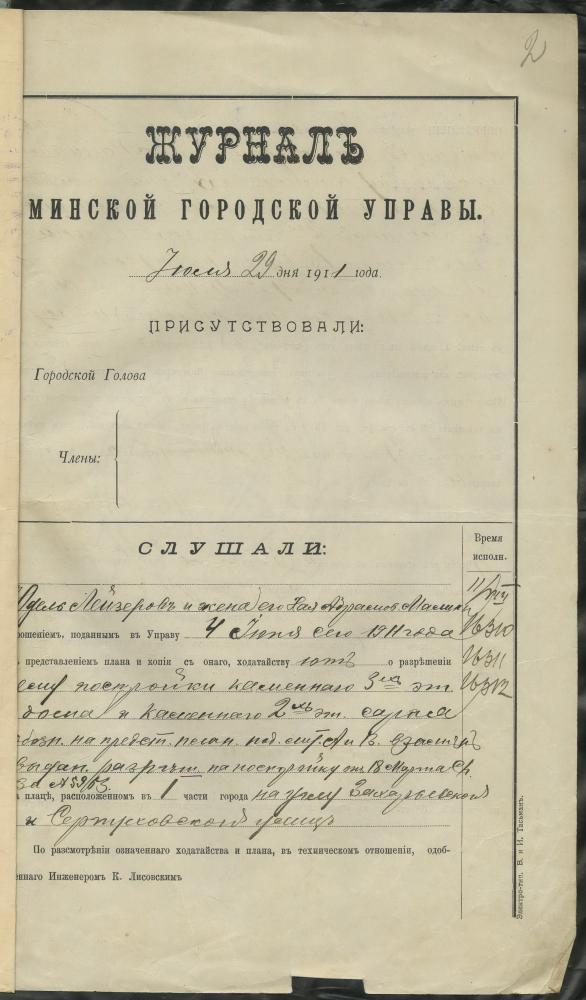 2
ЖУРНАЛЪ
МИНСКОЙ ГОРОДСКОЙ УПРАВЫ.
Іюля 29 дня 1911 года.
ПРИСУТСТВОВАЛИ:
Городской Голова
Члены:
СЛУШАЛИ:
Время
исполн.
11/VIII
Лейзеровъ и жена его Хая Абрамова
рошеніемъ, поданнымъ въ Управу 4 Іюня сего 1911 года
представленіемъ плана и копіи съ онаго, ходатайству ютъ о разрѣшеніи
ему постройки каменнаго 3хъ эт.
дома и каменнаго 2хъ эт. сарая
на предст. план. под лит. А и В. взамѣнъ
выдан. разрѣш. на постройку отъ 18 Марта
плацѣ, расположенномъ въ 1 части города на углу Захарьевской
и Серпуховской улицъ
По разсмотрѣніи означеннаго ходатайства и плана, въ техническомъ отношеніи, одоб-
еннаго Инженеромъ К. Лисовскимъ
Электро-тип. В. и И. Тасьман.